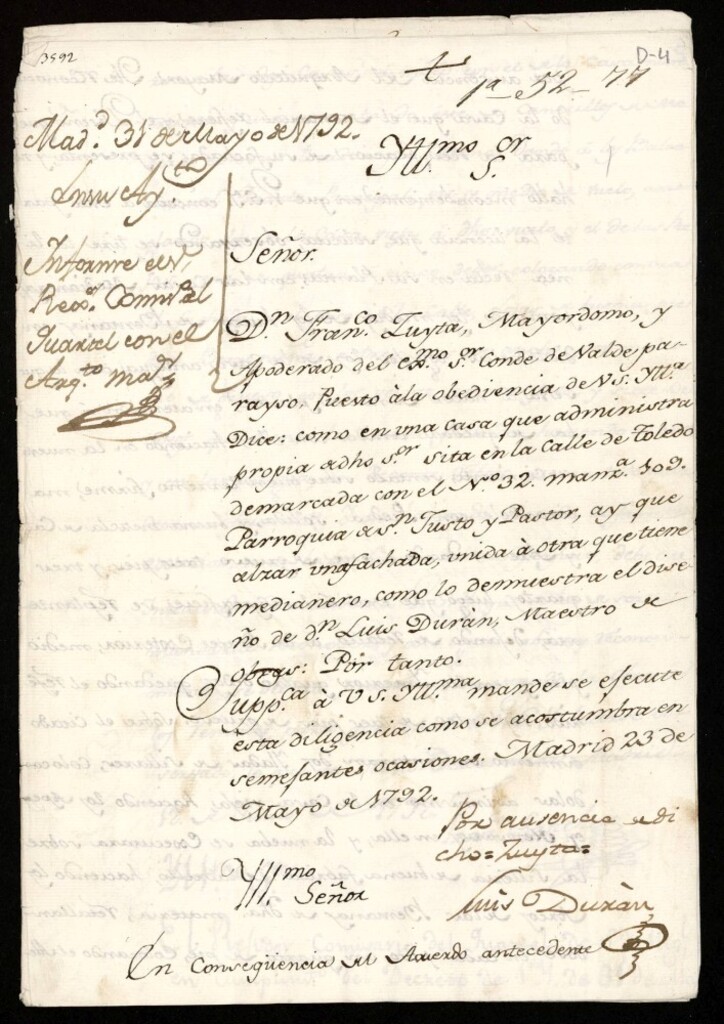 3592
D-4
1ª-52-77
Mad.d 31 de Mayo de 1792.
Yll.mo S.or
En su Ay.to
Informe el S.r
Rex.or Comis.o del
Quartel con el
Arq.to may.r
Señor.
D.n Fran.co Zuyta, Mayordomo, y
Apoderado del ex.mo s.or Conde de Valde pa-
rayso, Puesto àla obediencia de V s. Yll.ma
Dice: como en una casa que administra
propia de dho s.or sita en la Calle de Toledo
demarcada con el N.o 32. manz.a 109.
Parroquia de s.n Justo y Pastor, ay que
alzar una fachada, unida à otra que tiene
medianero, como lo demuestra el dise-
ño de d.n Luis Duràn, Maestro de
obras: Por tanto.
Supp.ca à V s. Yll.ma mande se ejecute
esta diligencia como se acostumbra en
semejantes ocasiones. Madrid 23 de
Mayo de 1792.
Por ausencia de di
cho = Zuyta =
Yll.mo
Señor
Luis Duràn
En Conseqüencia del Acuerdo antecedente